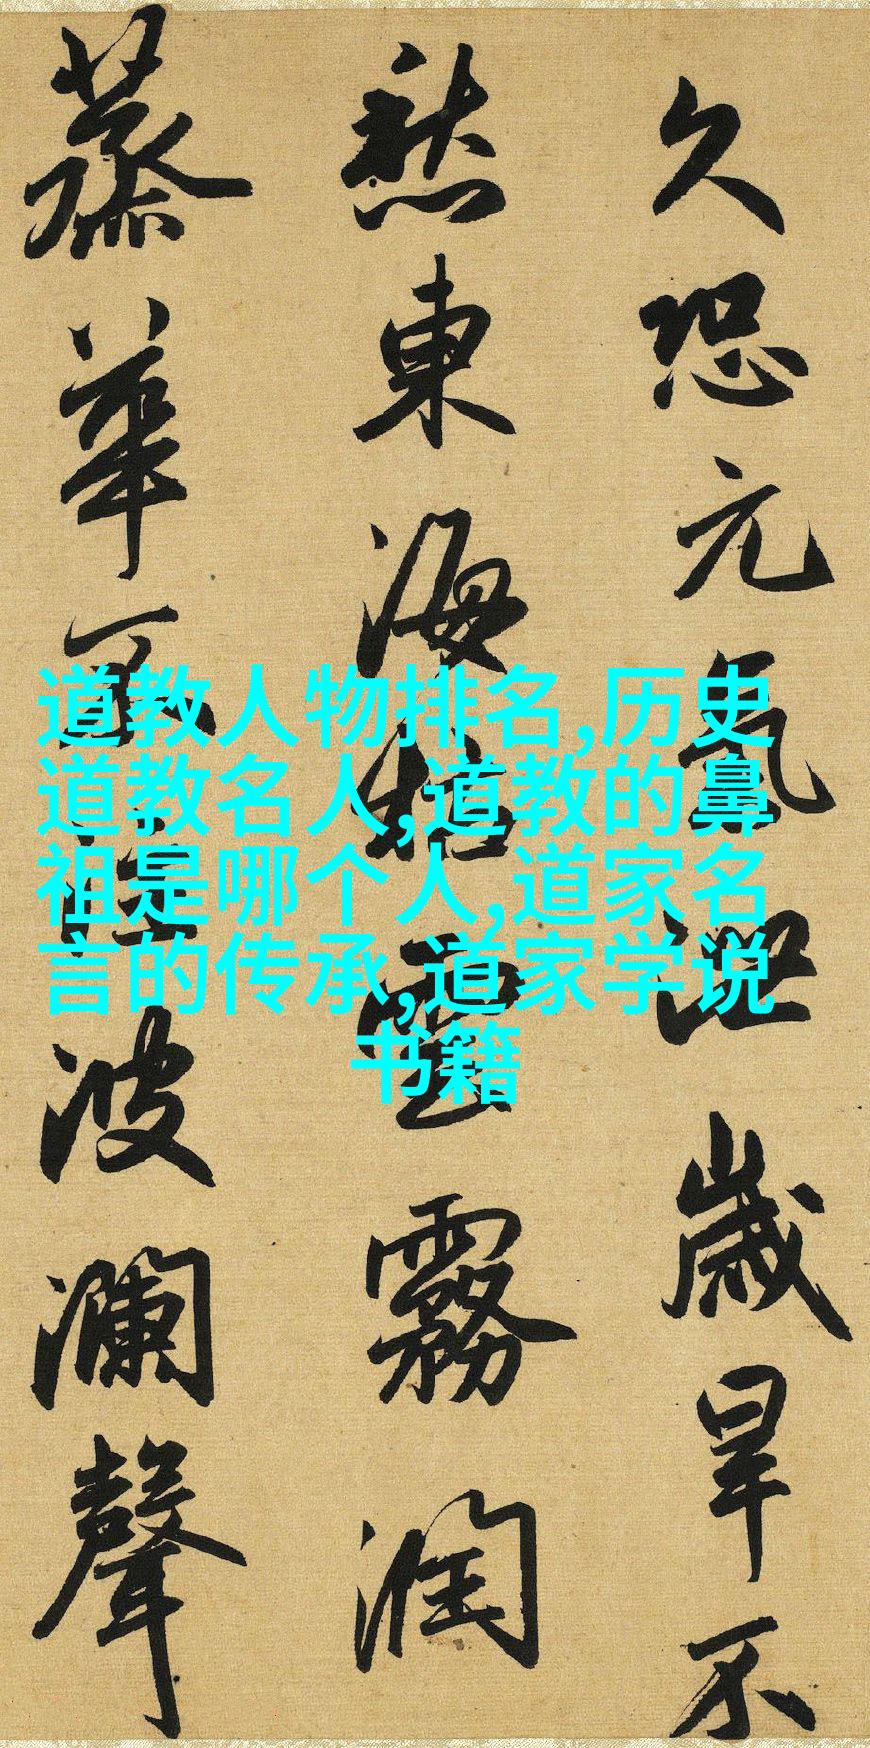 久恐元氣泄歲旱不
愁東海枯雲霧潤
蒸華不注波瀾聲
道教人物排名,历史
道教名人,道教的鼻
祖是哪个人,道家名
言的传承,道家学说
书籍